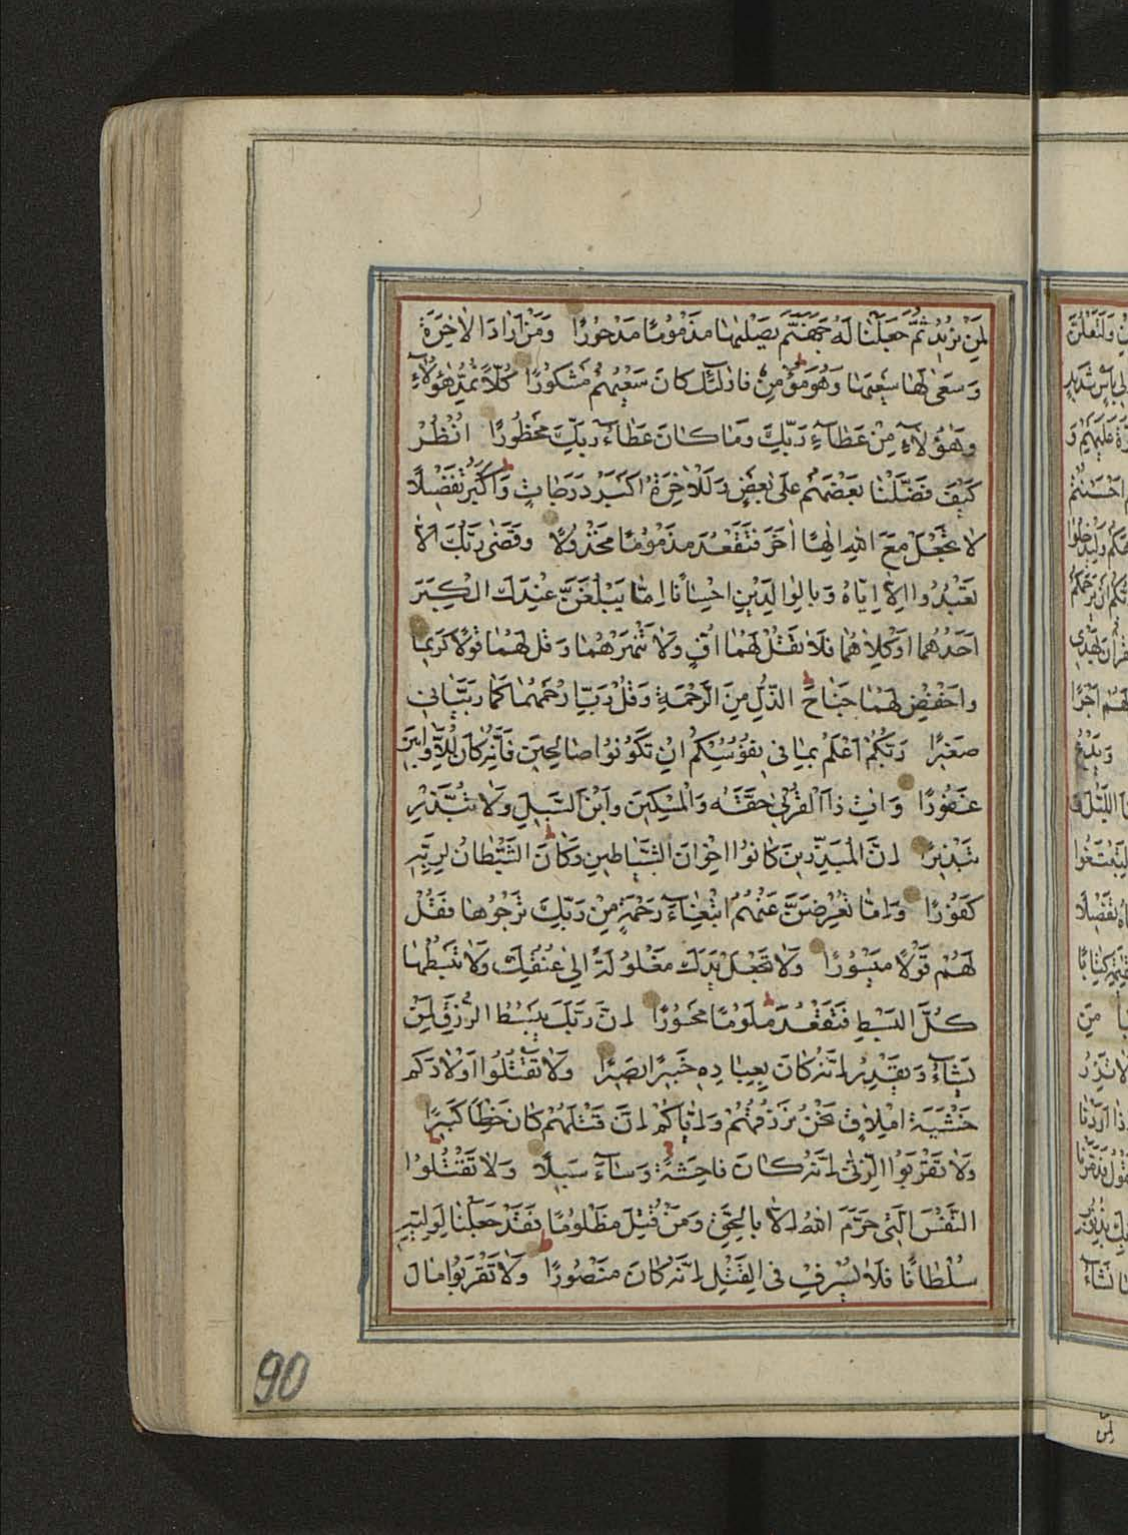 لِمَنْ نُرِيدُ ثُمَّ جَعَلْنَا لَهُ جَهَنَّمَ يَصْلٰيهَا مَذْمُومًا مَدْحُورًا وَمَنْ اَرَادَ الْاٰخِرَةَ
وَسَعٰى لَهَا سَعْيَهَا وَهُوَ مُؤْمِنٌ فَاُولٰئِكَ كَانَ سَعْيُهُمْ مَشْكُورًا كُلًّا نُمِدُّ هٰؤُلَاءِ
وَهٰؤُلَاءِ مِنْ عَطَاءِ رَبِّكَ وَمَا كَانَ عَطَاءُ رَبِّكَ مَحْظُورًا اُنْظُرْ
كَيْفَ فَضَّلْنَا بَعْضَهُمْ عَلٰى بَعْضٍ وَلَلْاٰخِرَةُ اَكْبَرُ دَرَجَاتٍ وَاَكْبَرُ تَفْضِيلًا
لَا تَجْعَلْ مَعَ اللّٰهِ اِلٰهًا اٰخَرَ فَتَقْعُدَ مَذْمُومًا مَخْذُولًا وَقَضٰى رَبُّكَ اَلَّا
تَعْبُدُوا اِلَّا اِيَّاهُ وَبِالْوَالِدَيْنِ اِحْسَانًا اِمَّا يَبْلُغَنَّ عِنْدَكَ الْكِبَرَ
اَحَدُهُمَا اَوْ كِلَاهُمَا فَلَا تَقُلْ لَهُمَا اُفٍّ وَلَا تَنْهَرْهُمَا وَقُلْ لَهُمَا قَوْلًا كَرِيمًا
وَاخْفِضْ لَهُمَا جَنَاحَ الذُّلِّ مِنَ الرَّحْمَةِ وَقُلْ رَبِّ ارْحَمْهُمَا كَمَا رَبَّيَانِي
صَغِيرًا رَبُّكُمْ اَعْلَمُ بِمَا فِي نُفُوسِكُمْ اِنْ تَكُونُوا صَالِحِينَ فَاِنَّهُ كَانَ لِلْاَوَّابِينَ
غَفُورًا وَاٰتِ ذَا الْقُرْبٰى حَقَّهُ وَالْمِسْكِينَ وَابْنَ السَّبِيلِ وَلَا تُبَذِّرْ
تَبْذِيرًا اِنَّ الْمُبَذِّرِينَ كَانُوا اِخْوَانَ الشَّيَاطِينِ وَكَانَ الشَّيْطَانُ لِرَبِّهِ
كَفُورًا وَاِمَّا تُعْرِضَنَّ عَنْهُمُ ابْتِغَاءَ رَحْمَةٍ مِنْ رَبِّكَ تَرْجُوهَا فَقُلْ
لَهُمْ قَوْلًا مَيْسُورًا وَلَا تَجْعَلْ يَدَكَ مَغْلُولَةً اِلٰى عُنُقِكَ وَلَا تَبْسُطْهَا
كُلَّ الْبَسْطِ فَتَقْعُدَ مَلُومًا مَحْسُورًا اِنَّ رَبَّكَ يَبْسُطُ الرِّزْقَ لِمَنْ
يَشَاءُ وَيَقْدِرُ اِنَّهُ كَانَ بِعِبَادِهِ خَبِيرًا بَصِيرًا وَلَا تَقْتُلُوا اَوْلَادَكُمْ
خَشْيَةَ اِمْلَاقٍ نَحْنُ نَرْزُقُهُمْ وَاِيَّاكُمْ اِنَّ قَتْلَهُمْ كَانَ خِطْأً كَبِيرًا
وَلَا تَقْرَبُوا الزِّنٰى اِنَّهُ كَانَ فَاحِشَةً وَسَاءَ سَبِيلًا وَلَا تَقْتُلُوا
النَّفْسَ الَّتِي حَرَّمَ اللّٰهُ اِلَّا بِالْحَقِّ وَمَنْ قُتِلَ مَظْلُومًا فَقَدْ جَعَلْنَا لِوَلِيِّهِ
سُلْطَانًا فَلَا يُسْرِفْ فِي الْقَتْلِ اِنَّهُ كَانَ مَنْصُورًا وَلَا تَقْرَبُوا مَالَ
90